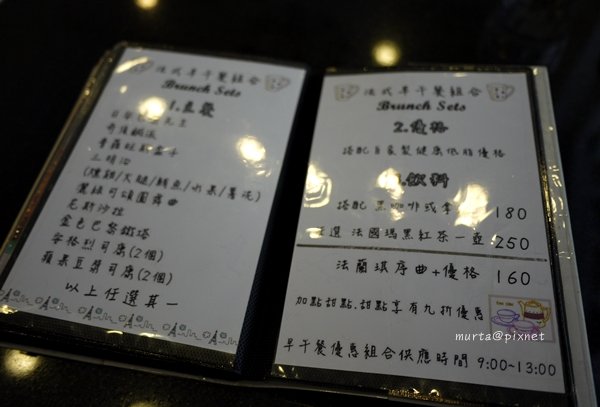 法式早午餐組合
Brunch Sets
1.主餐
三明治
(燻雞/火腿/鮪魚/水果/薯泥)
尼斯沙拉
金色巴黎鐵塔
安格烈可麗(2個)
蘋果豆漿可麗(2個)
以上任選其一
法式早午餐組合
Brunch Sets
2.優格
搭配自家製健康低脂優格
3.飲料
搭配 黑咖啡或拿 180
選 法國瑪黑紅茶一壺 250
法蘭琪序曲+優格 160
加點甜點,甜點享有九折優惠
早午餐優惠組合供應時間 9:00~13:00
murta@pixnet